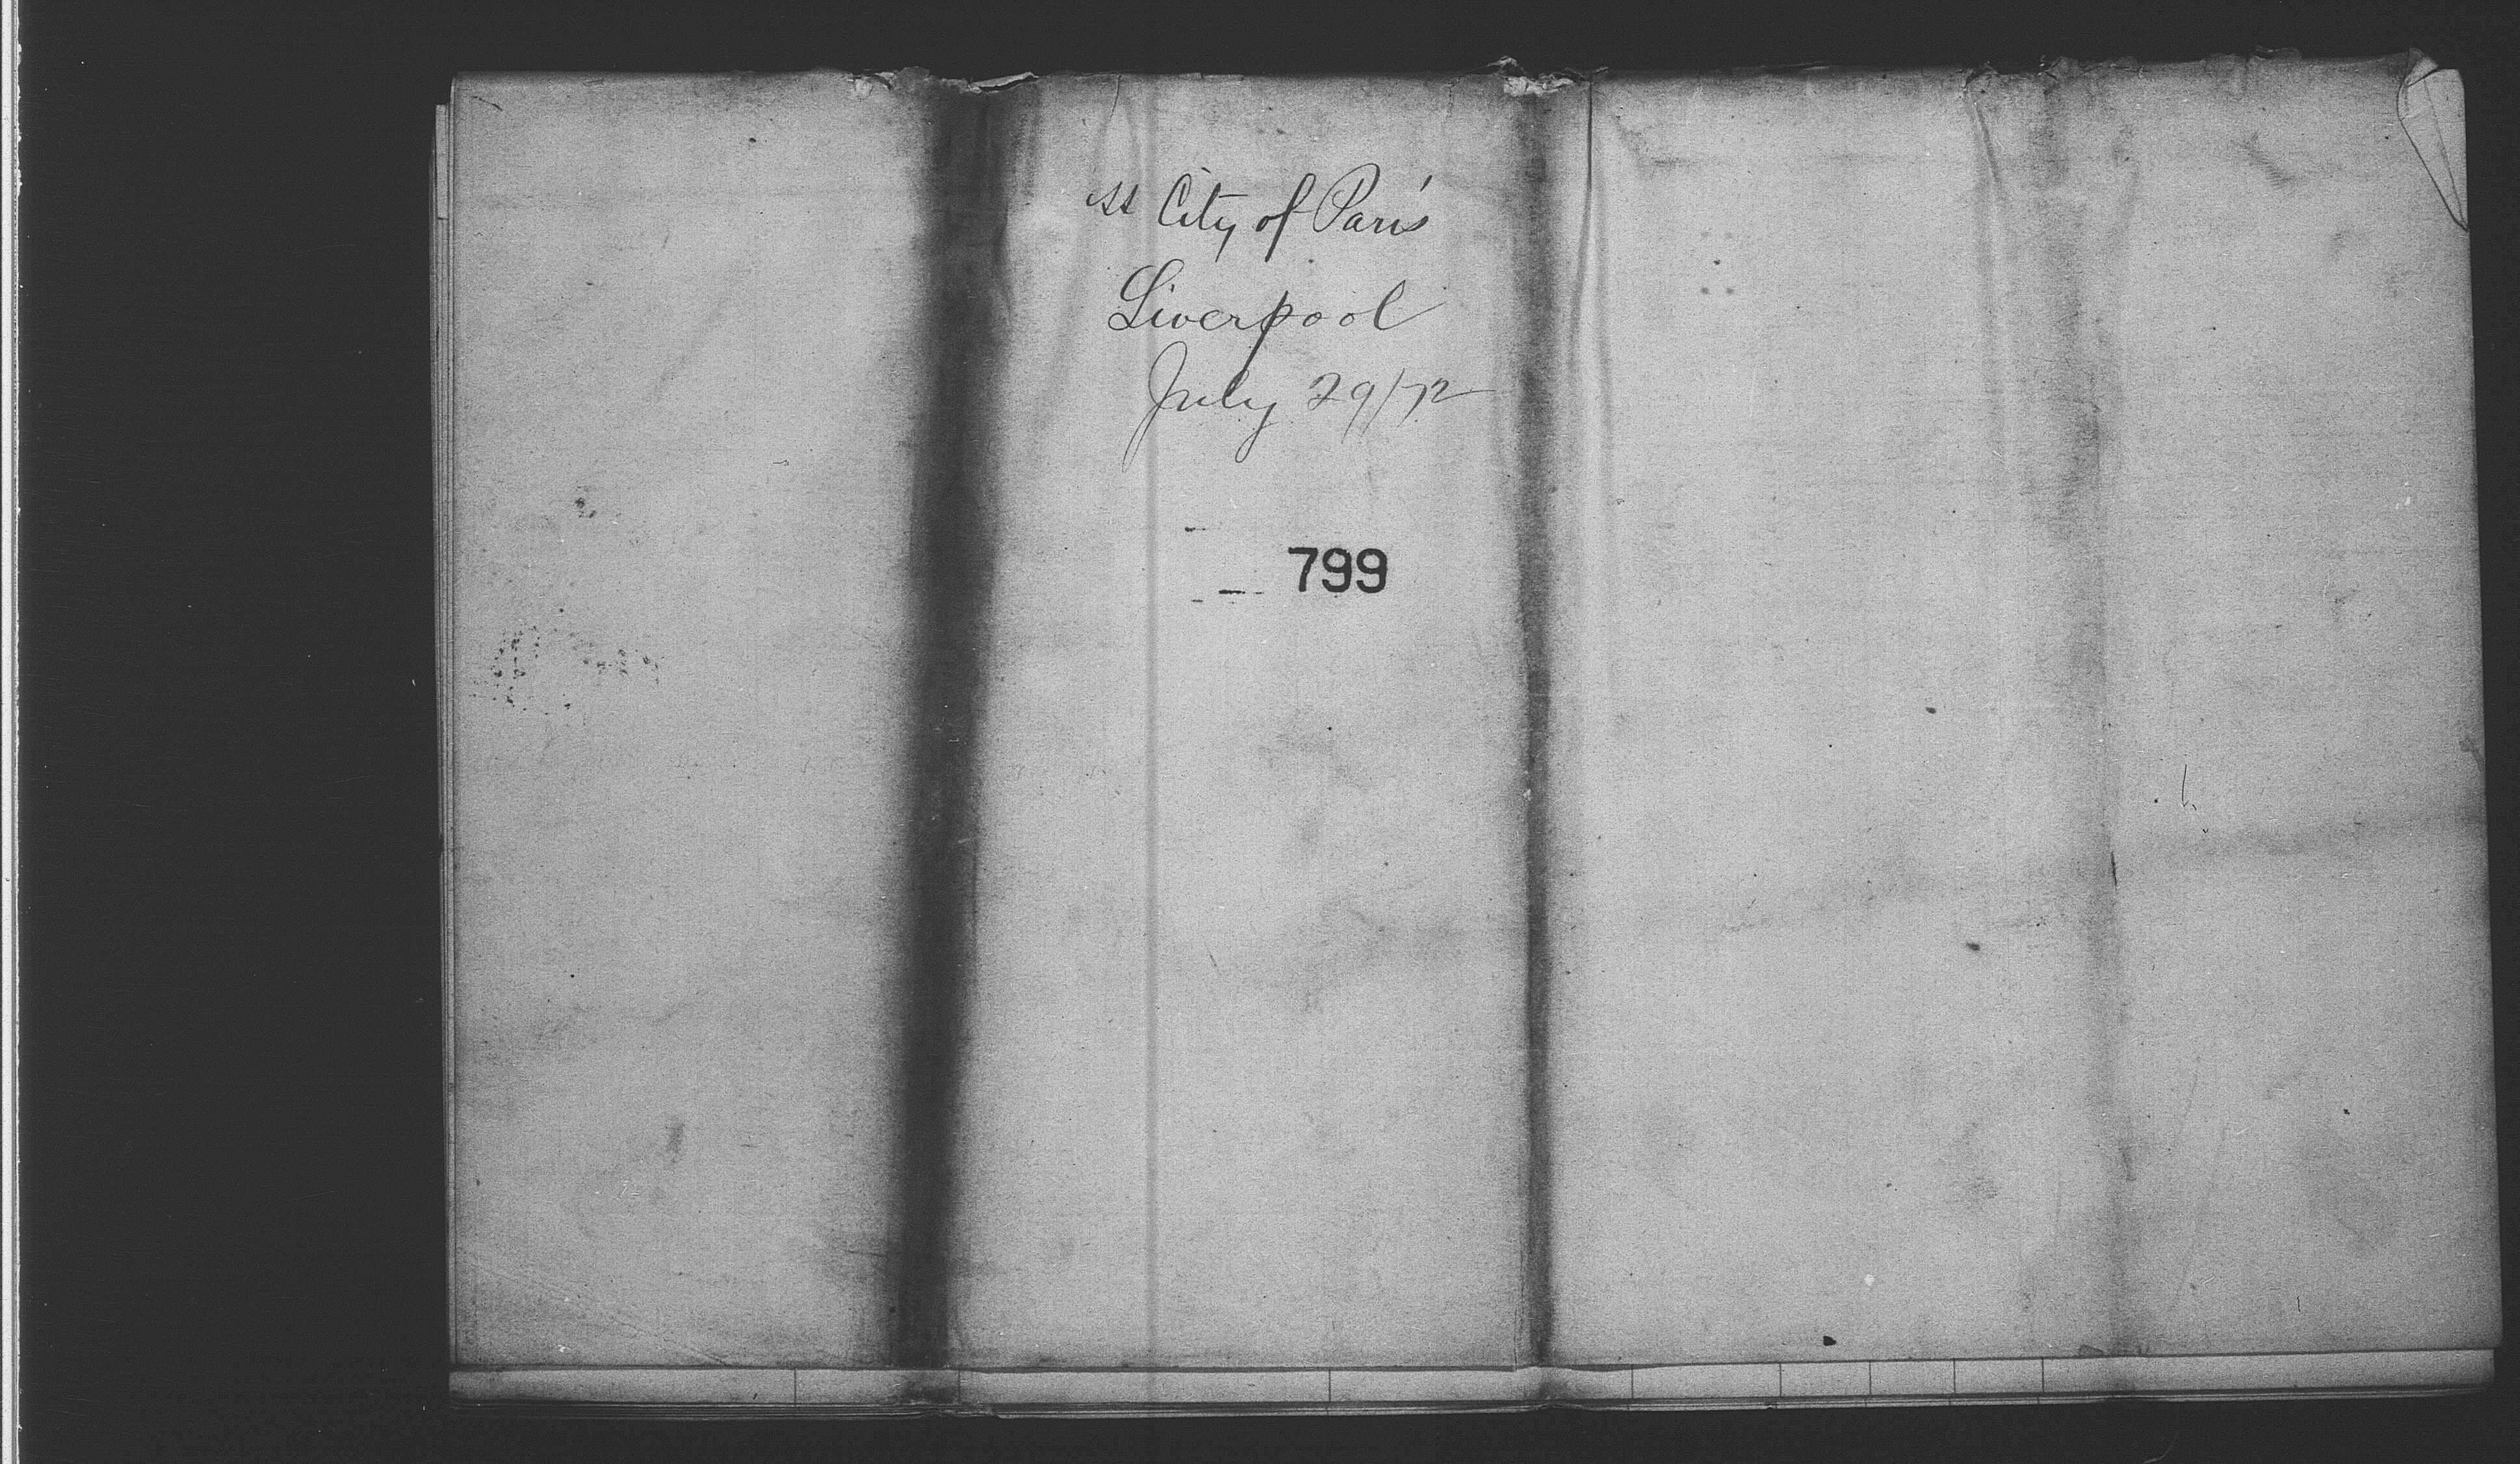 SS City of Paris
Liverpool
July 29/72
799